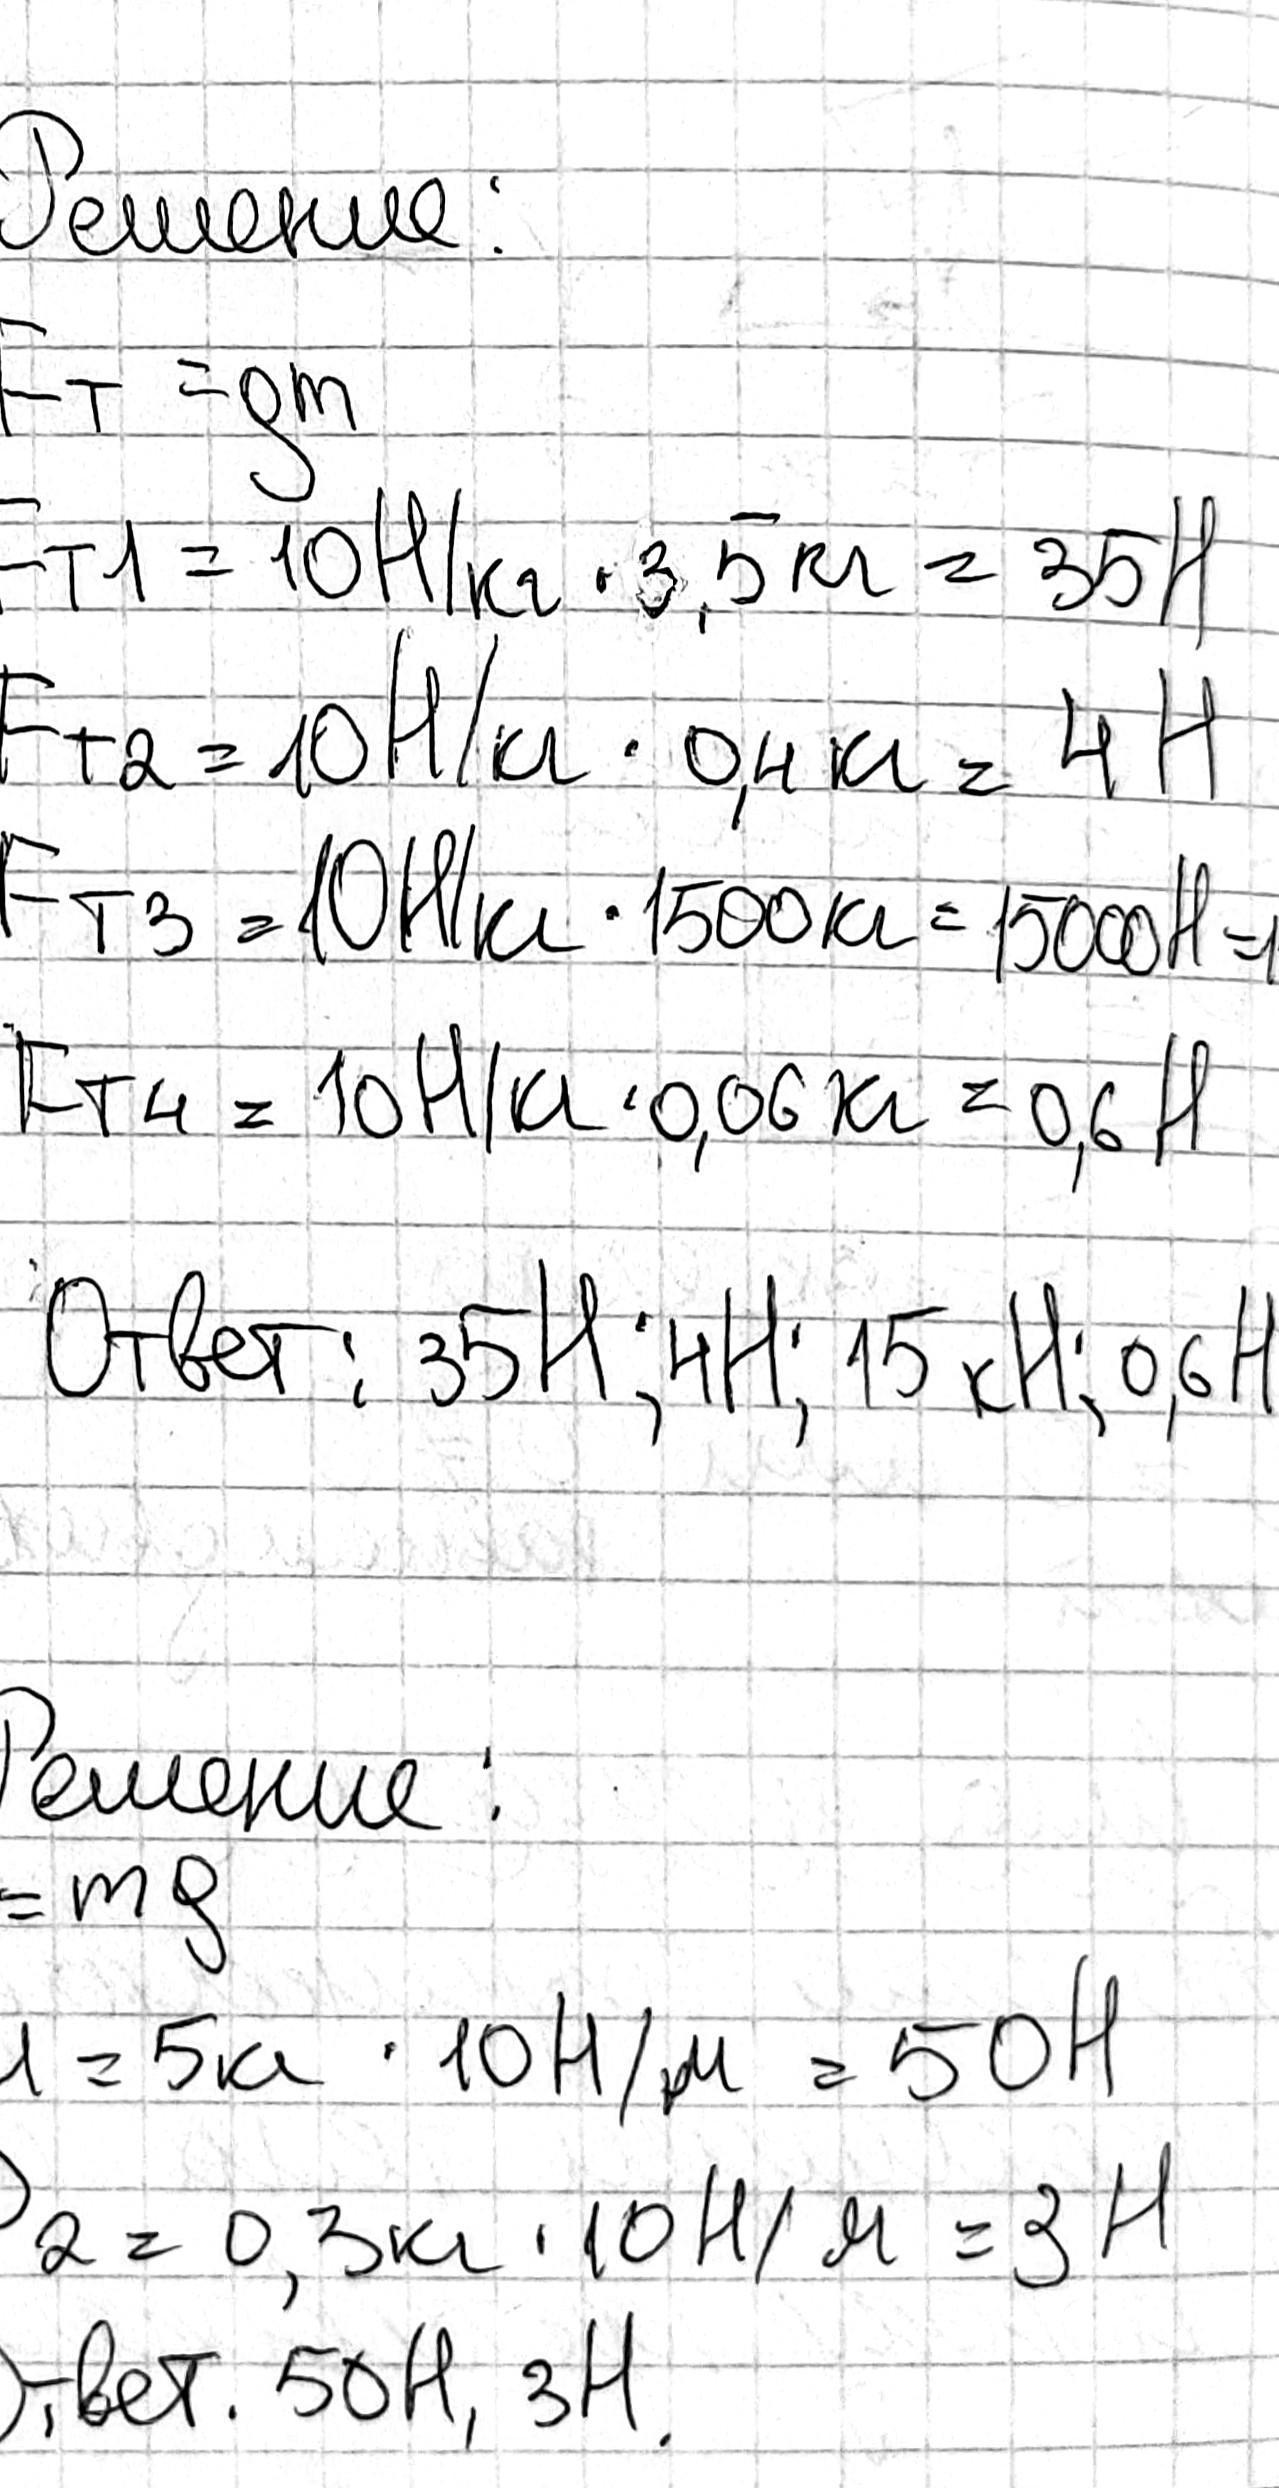 Решение:
Fт = gm
Fт1 = 10Н/кг · 3,5кг = 35Н
Fт2 = 10Н/кг · 0,4кг = 4Н
Fт3 = 10Н/кг · 1500кг = 15000Н = 1
Fт4 = 10Н/кг · 0,06кг = 0,6Н
Ответ: 35Н; 4Н; 15кН; 0,6Н
Решение:
= mg
1 = 5кг · 10Н/м = 50Н
P2 = 0,3кг · 10Н/м = 3Н
Ответ. 50Н, 3Н.